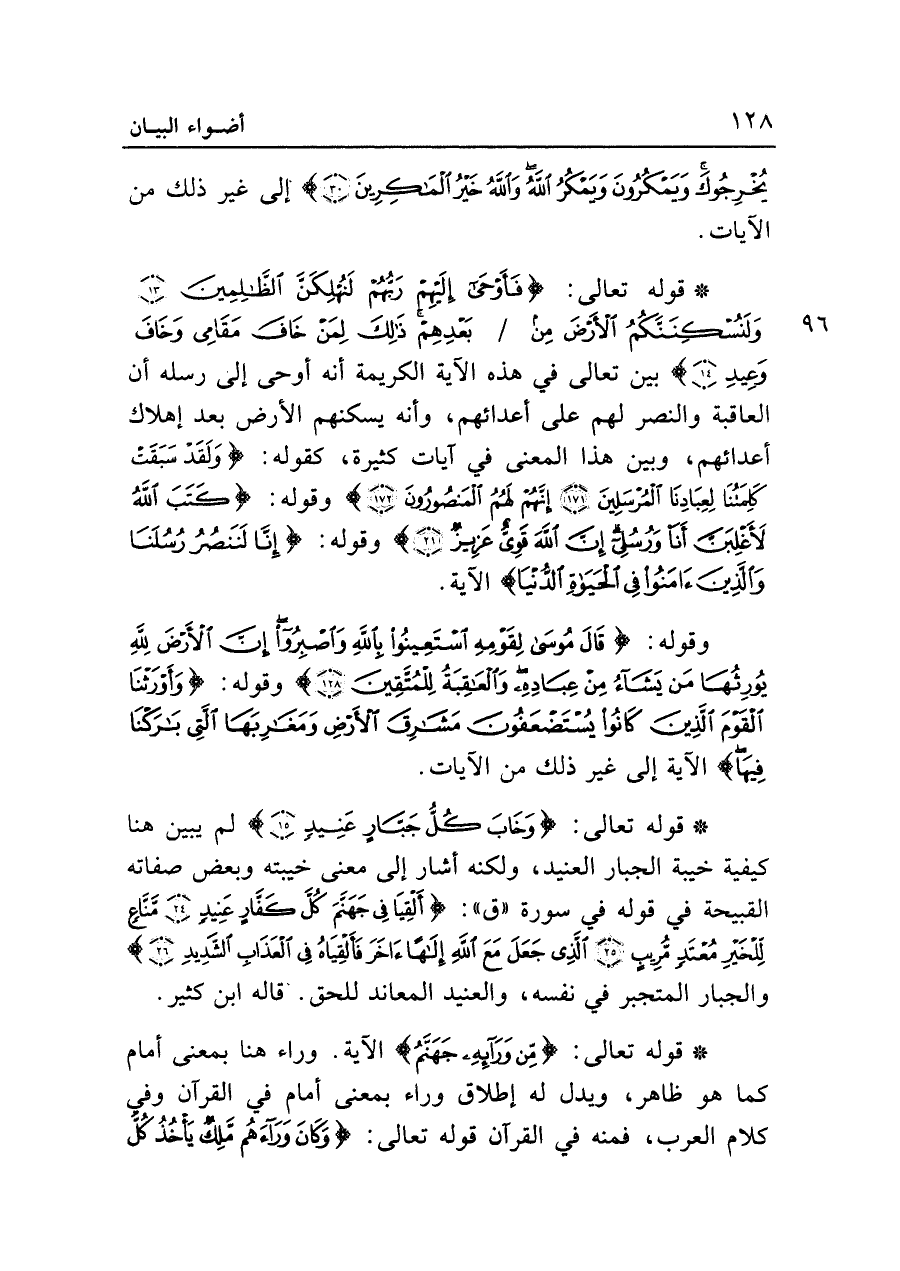 ١٢٨ أضواء البيان
يُخْرِجُوكَ ۚ وَيَمْكُرُونَ وَيَمْكُرُ ٱللَّهُ ۖ وَٱللَّهُ خَيْرُ ٱلْمَـٰكِرِينَ ٣٠ ﴾ إلى غير ذلك من
الآيات .
* قوله تعالى : ﴿ فَأَوْحَىٰٓ إِلَيْهِمْ رَبُّهُمْ لَنُهْلِكَنَّ ٱلظَّـٰلِمِينَ ١٣
وَلَنُسْكِنَنَّكُمُ ٱلْأَرْضَ مِنۢ / بَعْدِهِمْ ۚ ذَٰلِكَ لِمَنْ خَافَ مَقَامِى وَخَافَ ٩٦
وَعِيدِ ١٤ ﴾ بين تعالى في هذه الآية الكريمة أنه أوحى إلى رسله أن
العاقبة والنصر لهم على أعدائهم، وأنه يسكنهم الأرض بعد إهلاك
أعدائهم، وبين هذا المعنى في آيات كثيرة، كقوله: ﴿ وَلَقَدْ سَبَقَتْ
كَلِمَتُنَا لِعِبَادِنَا ٱلْمُرْسَلِينَ ١٧١ إِنَّهُمْ لَهُمُ ٱلْمَنصُورُونَ ١٧٢ ﴾ وقوله: ﴿ كَتَبَ ٱللَّهُ
لَأَغْلِبَنَّ أَنَا۠ وَرُسُلِىٓ ۚ إِنَّ ٱللَّهَ قَوِىٌّ عَزِيزٌ ٢١ ﴾ وقوله: ﴿ إِنَّا لَنَنصُرُ رُسُلَنَا
وَٱلَّذِينَ ءَامَنُوا۟ فِى ٱلْحَيَوٰةِ ٱلدُّنْيَا ﴾ الآية .
وقوله: ﴿ قَالَ مُوسَىٰ لِقَوْمِهِ ٱسْتَعِينُوا۟ بِٱللَّهِ وَٱصْبِرُوٓا۟ ۖ إِنَّ ٱلْأَرْضَ لِلَّهِ
يُورِثُهَا مَن يَشَآءُ مِنْ عِبَادِهِۦ ۖ وَٱلْعَـٰقِبَةُ لِلْمُتَّقِينَ ١٢٨ ﴾ وقوله: ﴿ وَأَوْرَثْنَا
ٱلْقَوْمَ ٱلَّذِينَ كَانُوا۟ يُسْتَضْعَفُونَ مَشَـٰرِقَ ٱلْأَرْضِ وَمَغَـٰرِبَهَا ٱلَّتِى بَـٰرَكْنَا
فِيهَا ۖ ﴾ الآية إلى غير ذلك من الآيات .
* قوله تعالى : ﴿ وَخَابَ كُلُّ جَبَّارٍ عَنِيدٍ ١٥ ﴾ لم يبين هنا
كيفية خيبة الجبار العنيد، ولكنه أشار إلى معنى خيبته وبعض صفاته
القبيحة في قوله في سورة «ق»: ﴿ أَلْقِيَا فِى جَهَنَّمَ كُلَّ كَفَّارٍ عَنِيدٍ ٢٤ مَّنَّاعٍ
لِّلْخَيْرِ مُعْتَدٍ مُّرِيبٍ ٢٥ ٱلَّذِى جَعَلَ مَعَ ٱللَّهِ إِلَـٰهًا ءَاخَرَ فَأَلْقِيَاهُ فِى ٱلْعَذَابِ ٱلشَّدِيدِ ٢٦ ﴾
والجبار المتجبر في نفسه، والعنيد المعاند للحق. قاله ابن كثير .
* قوله تعالى : ﴿ مِّن وَرَآئِهِۦ جَهَنَّمُ ﴾ الآية. وراء هنا بمعنى أمام
كما هو ظاهر، ويدل له إطلاق وراء بمعنى أمام في القرآن وفي
كلام العرب، فمنه في القرآن قوله تعالى: ﴿ وَكَانَ وَرَآءَهُم مَّلِكٌ يَأْخُذُ كُلَّ